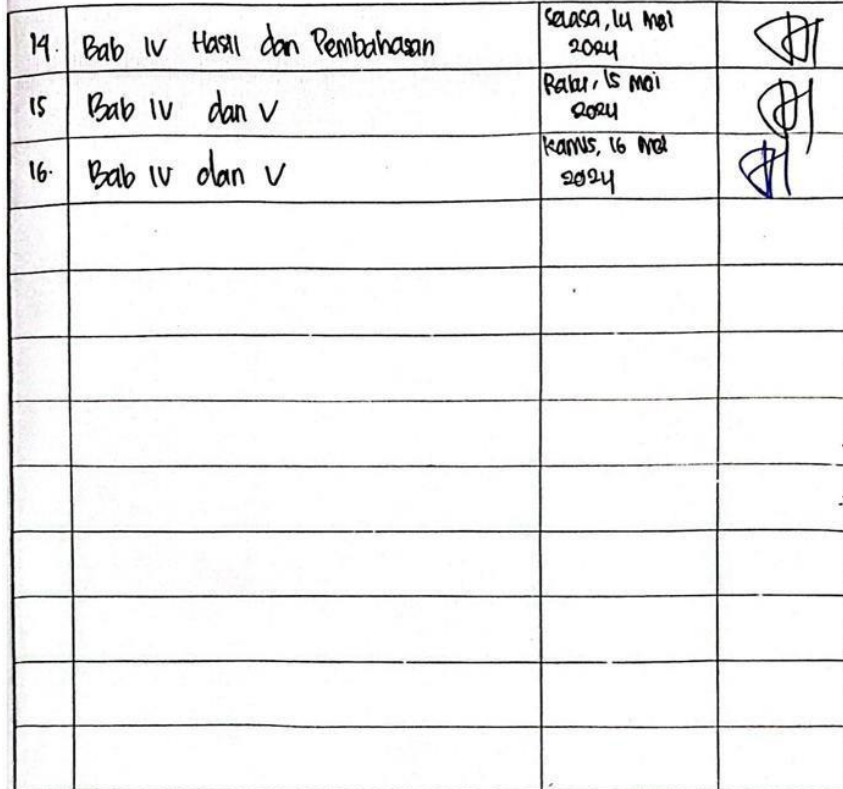 14. Bab IV Hasil dan Pembahasan
Selasa, 14 Mei
2024
15 Bab IV dan V
Rabu, 15 Mei
2024
16. Bab IV dan V
Kamis, 16 Mei
2024